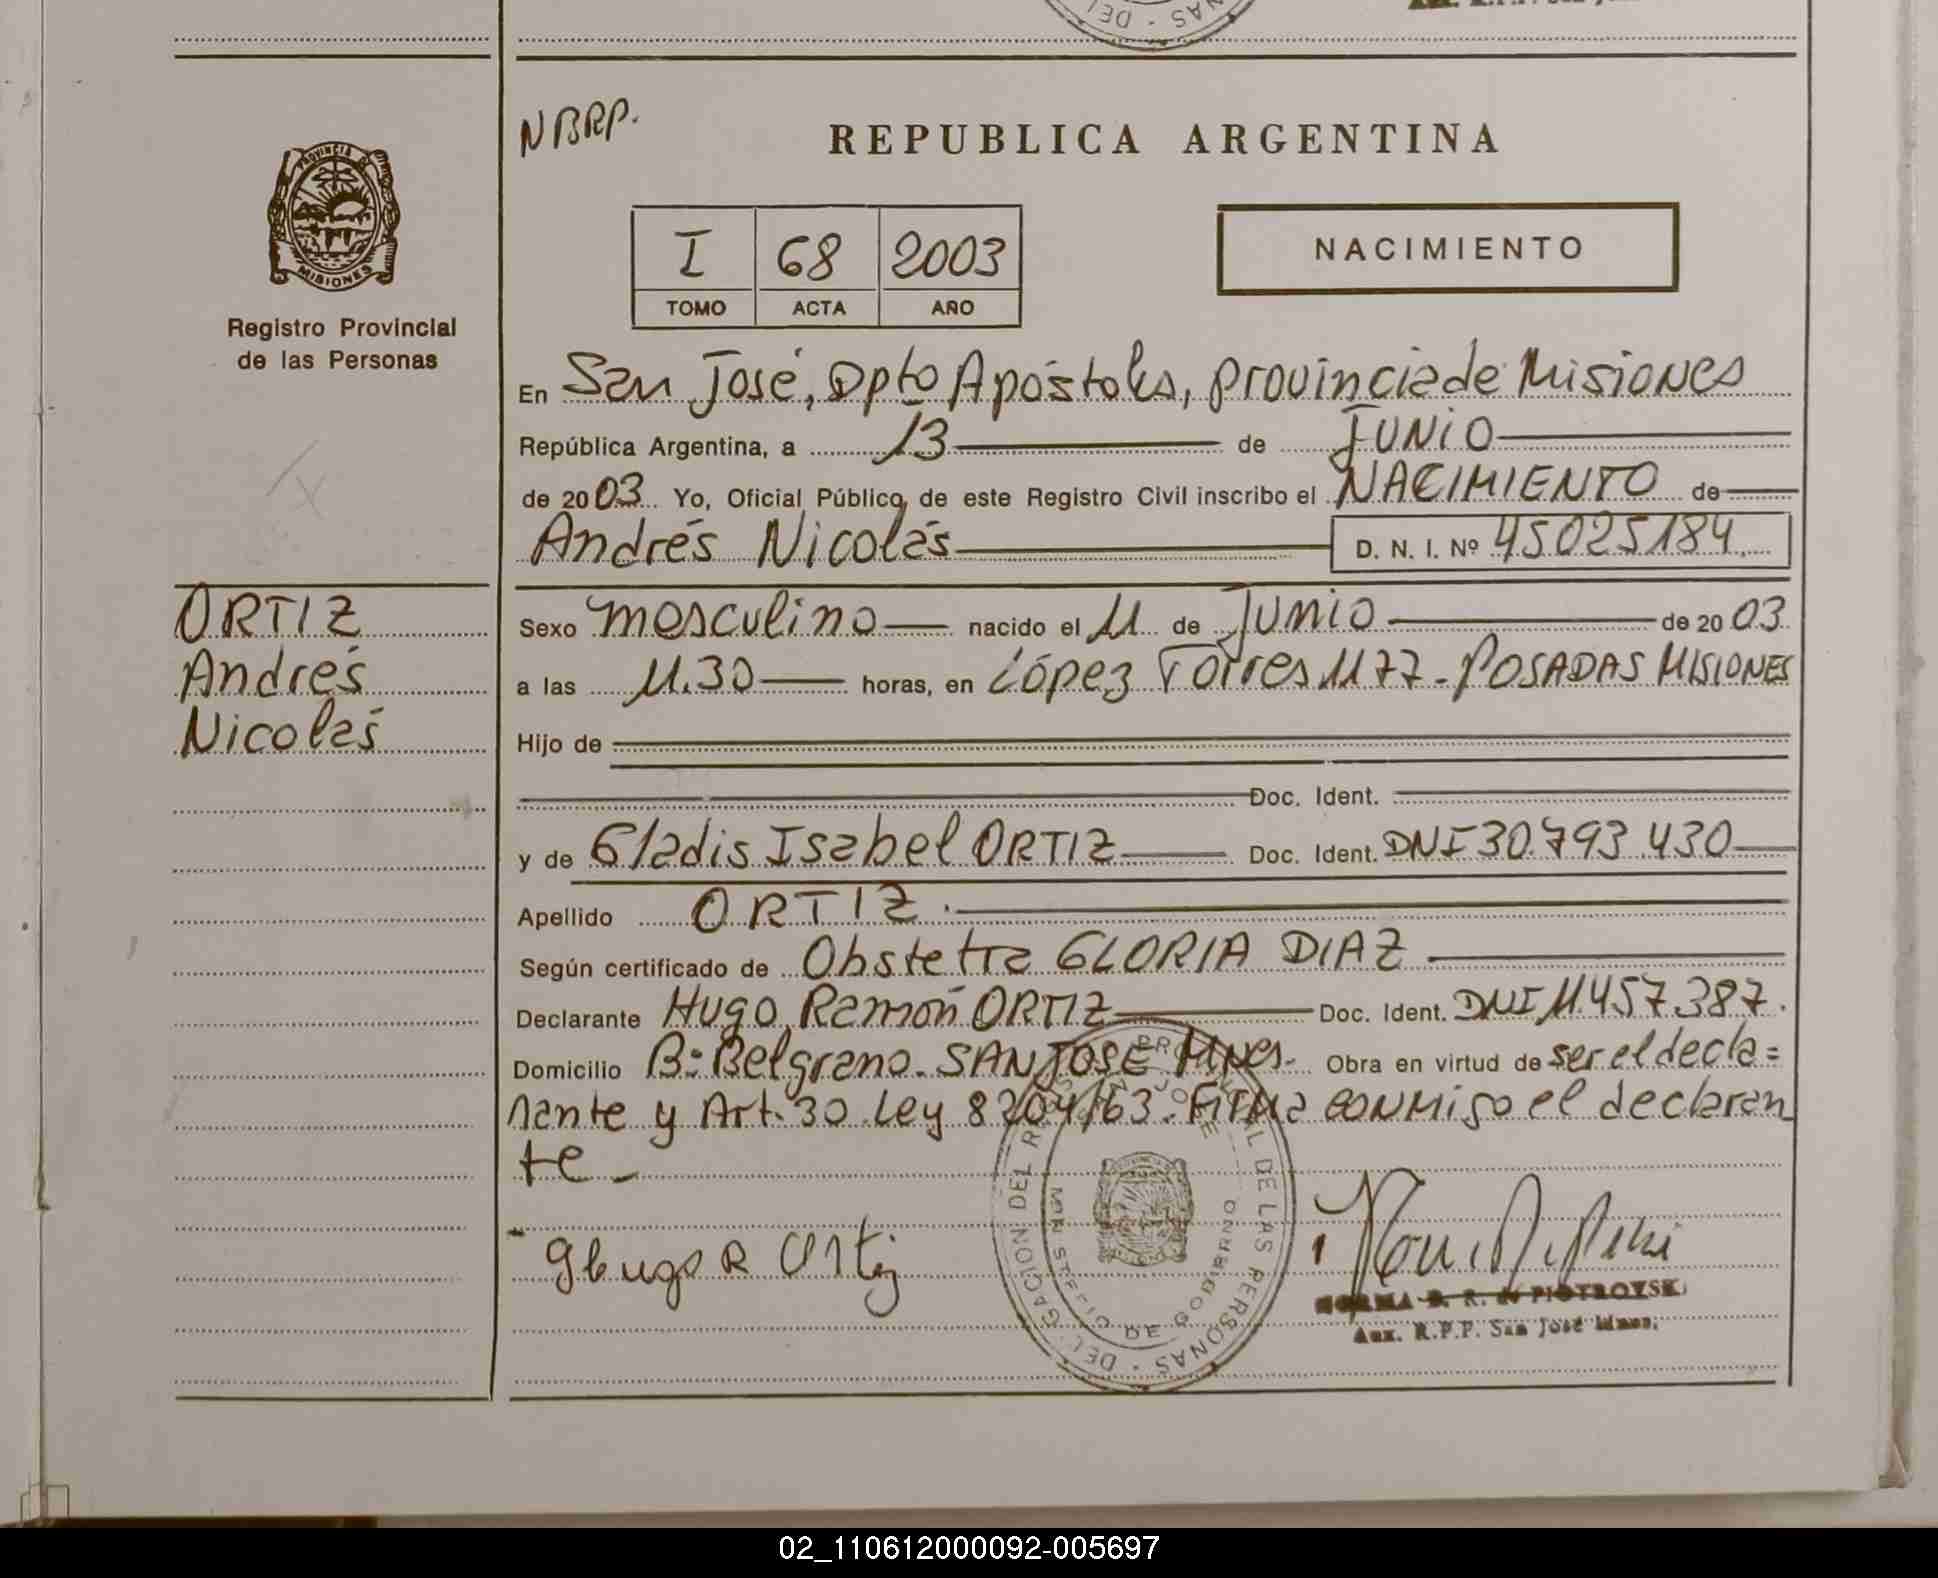 NBRP.
REPUBLICA ARGENTINA
PROVINCIA D
MISIONES
Registro Provincial
de las Personas
I 68 2003
TOMO ACTA AÑO
NACIMIENTO
En San José, Dpto Apóstoles, provincia de Misiones
República Argentina, a 13 de JUNIO
de 2003 Yo, Oficial Público, de este Registro Civil inscribo el NACIMIENTO de
Andrés Nicolás D. N. I. Nº 45025184
ORTIZ
Andrés
Nicolás
Sexo masculino nacido el 11 de Junio de 2003
a las 11.30 horas, en López Torres 1177 - POSADAS MISIONES
Hijo de
Doc. Ident.
y de Gladis Isabel ORTIZ Doc. Ident. DNI 30.793.430
Apellido ORTIZ.
Según certificado de Obstetra GLORIA DIAZ
Declarante Hugo Ramón ORTIZ Doc. Ident. DNI 11.457.387.
Domicilio Bº Belgrano. SAN JOSE Mnes. Obra en virtud de ser el decla=
rante y Art. 30 Ley 8204/63. Firma conmigo el declaran
te -
Hugo R Ortiz
NORMA B. R. de PIOTROVSKI
Aux. R.P.P. San José Mnes.
02_110612000092-005697